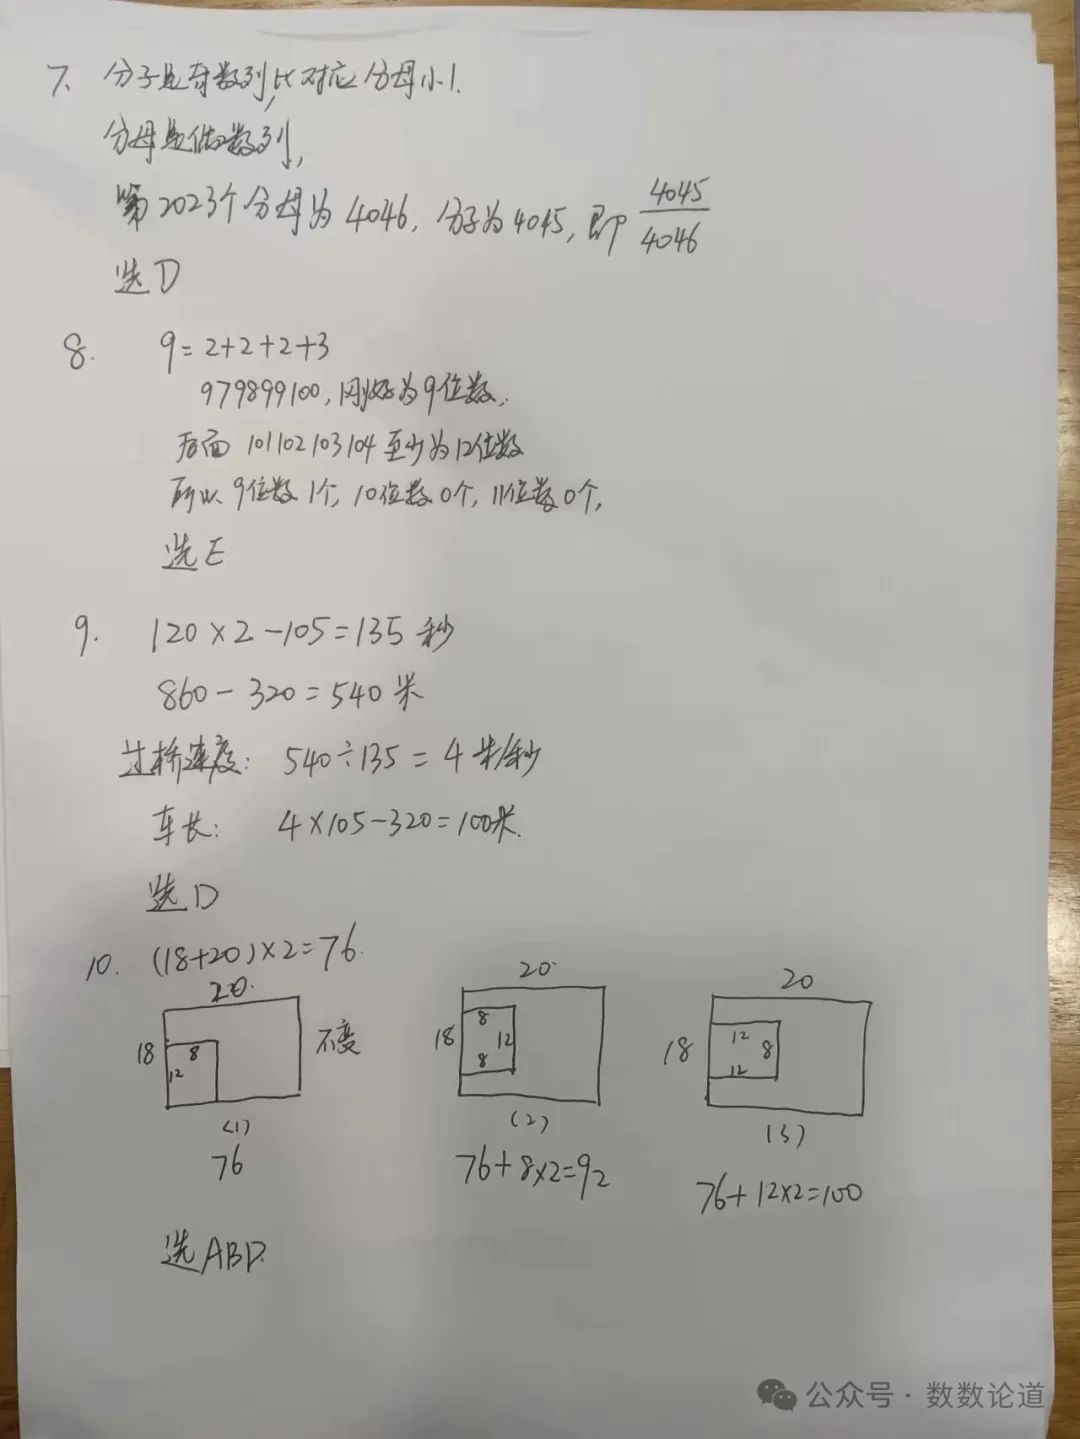 7. 分子是奇数列,比对应分母小1.
分母是偶数列,
第2023个分母为4046,分子为4045,即 4045/4046
选D
8. 9=2+2+2+3
979899100,刚好为9位数,
后面101102103104至少为12位数
所以9位数1个,10位数0个,11位数0个,
选E
9. 120×2-105=135秒
860-320=540米
过桥速度: 540÷135=4米/秒
车长: 4×105-320=100米.
选D
10. (18+20)×2=76.
20.
18
8
12
不变
(1)
76
20.
18
8
12
8
(2)
76+8×2=92
20
18
12
8
12
(3)
76+12×2=100
选ABD.
公众号·数数论道